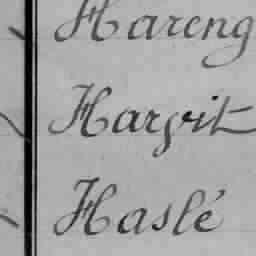 Hareng
Harvit
Haslé